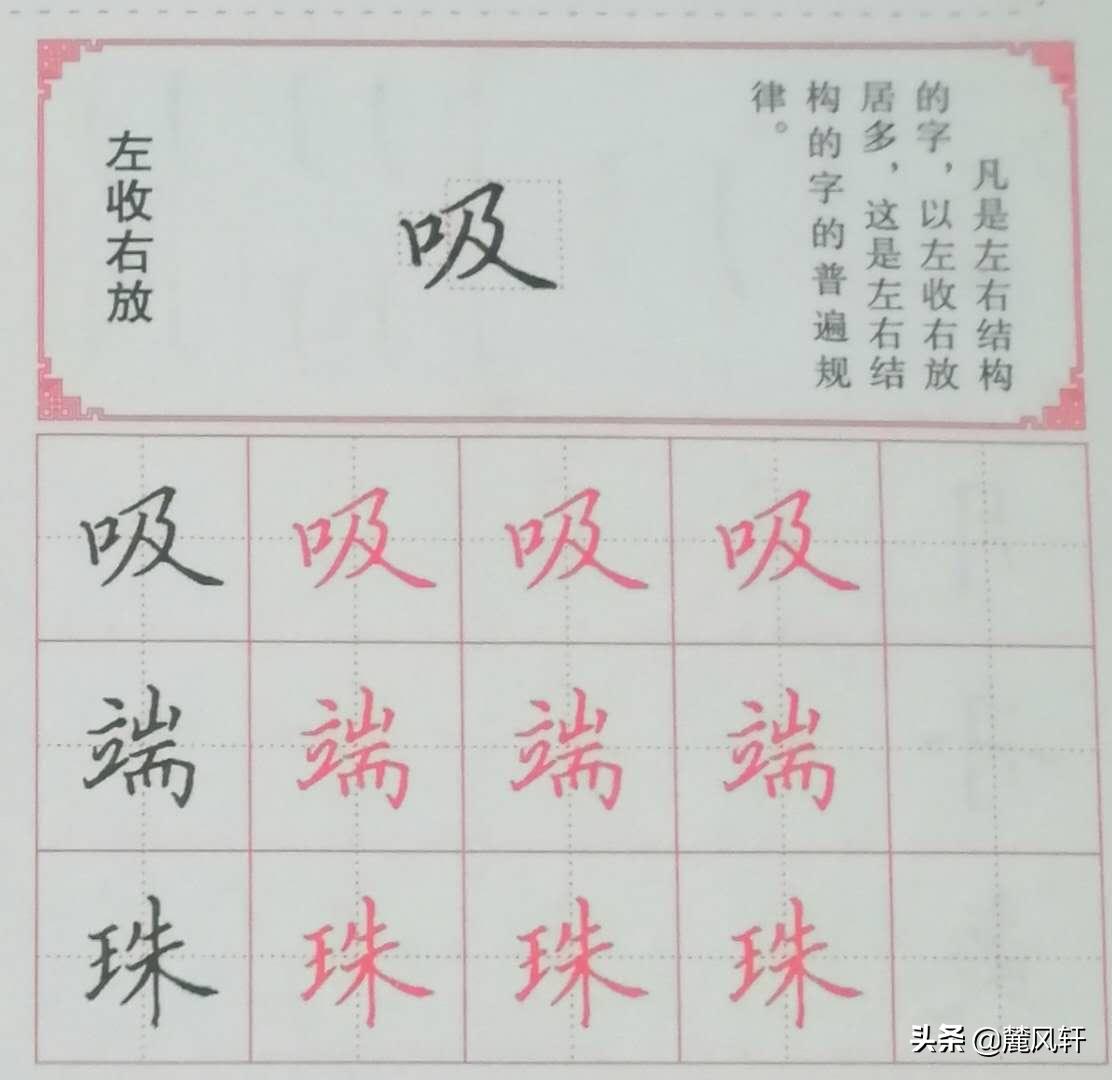 凡是左右结构
的字，以左收右放
居多，这是左右结
构的字的普遍规
律。
吸
左收右放
吸 吸 吸 吸
端 端 端 端
珠 珠 珠 珠
头条 @麓风轩